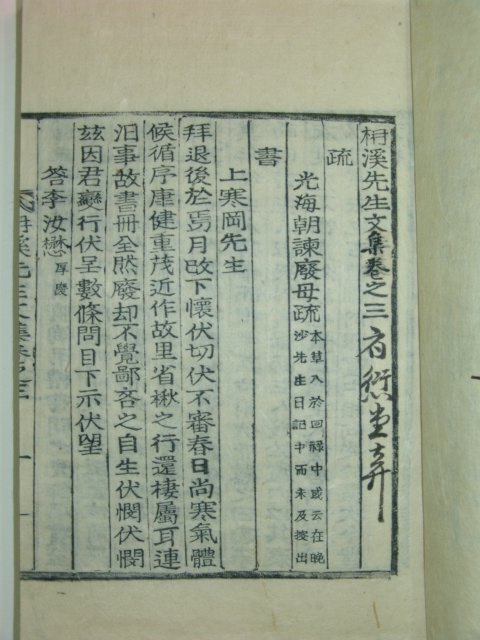 枏溪先生文集卷之三
疏
光海朝諫廢母疏 本草入於回祿中或云在晩沙先生日記中而未及搜出
書
上寒岡先生
拜退後於焉月改下懷伏切伏不審春日尚寒氣體
候循序康健重茂近作故里省楸之行還棲屬耳連
汨事故書冊全然廢却不覺鄙吝之自生伏憫伏憫
玆因君燮行伏呈數條問目下示伏望
答李汝懋 厚慶